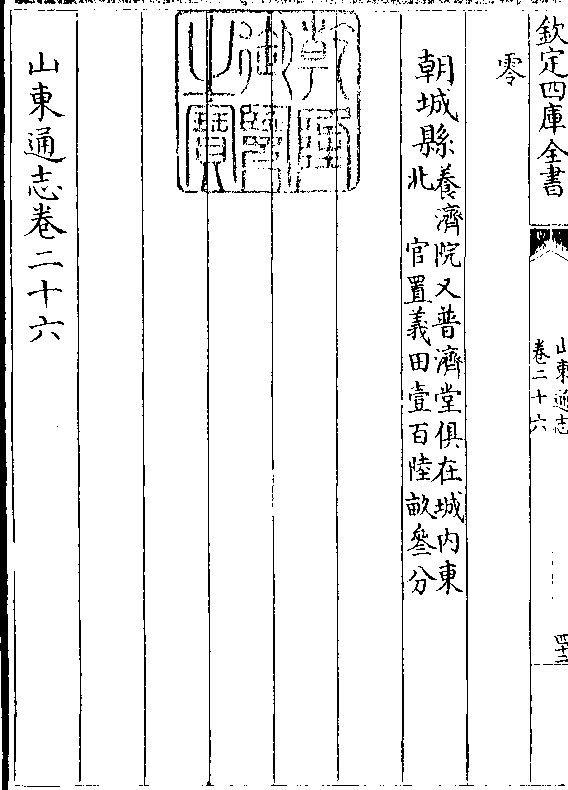 欽定四庫全書
山東通志
卷二十六
零
朝城縣養濟院又普濟堂俱在城内東
北 官置義田壹百陸畝叄分
乾隆御覽之寶
山東通志卷二十六